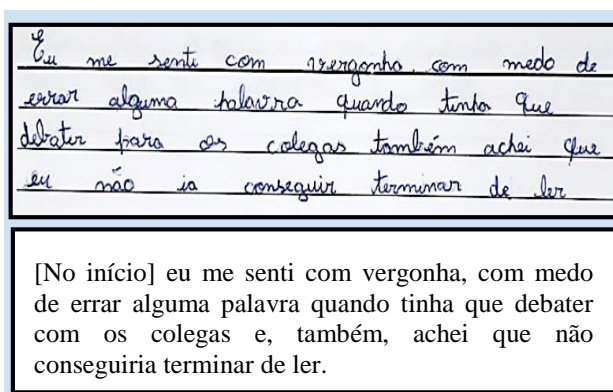 Eu me senti com vergonha, com medo de
errar alguma palavra quando tinha que
debater para os colegas também achei que
eu não ia conseguir terminar de ler
[No início] eu me senti com vergonha, com medo
de errar alguma palavra quando tinha que debater
com os colegas e, também, achei que não
conseguiria terminar de ler.